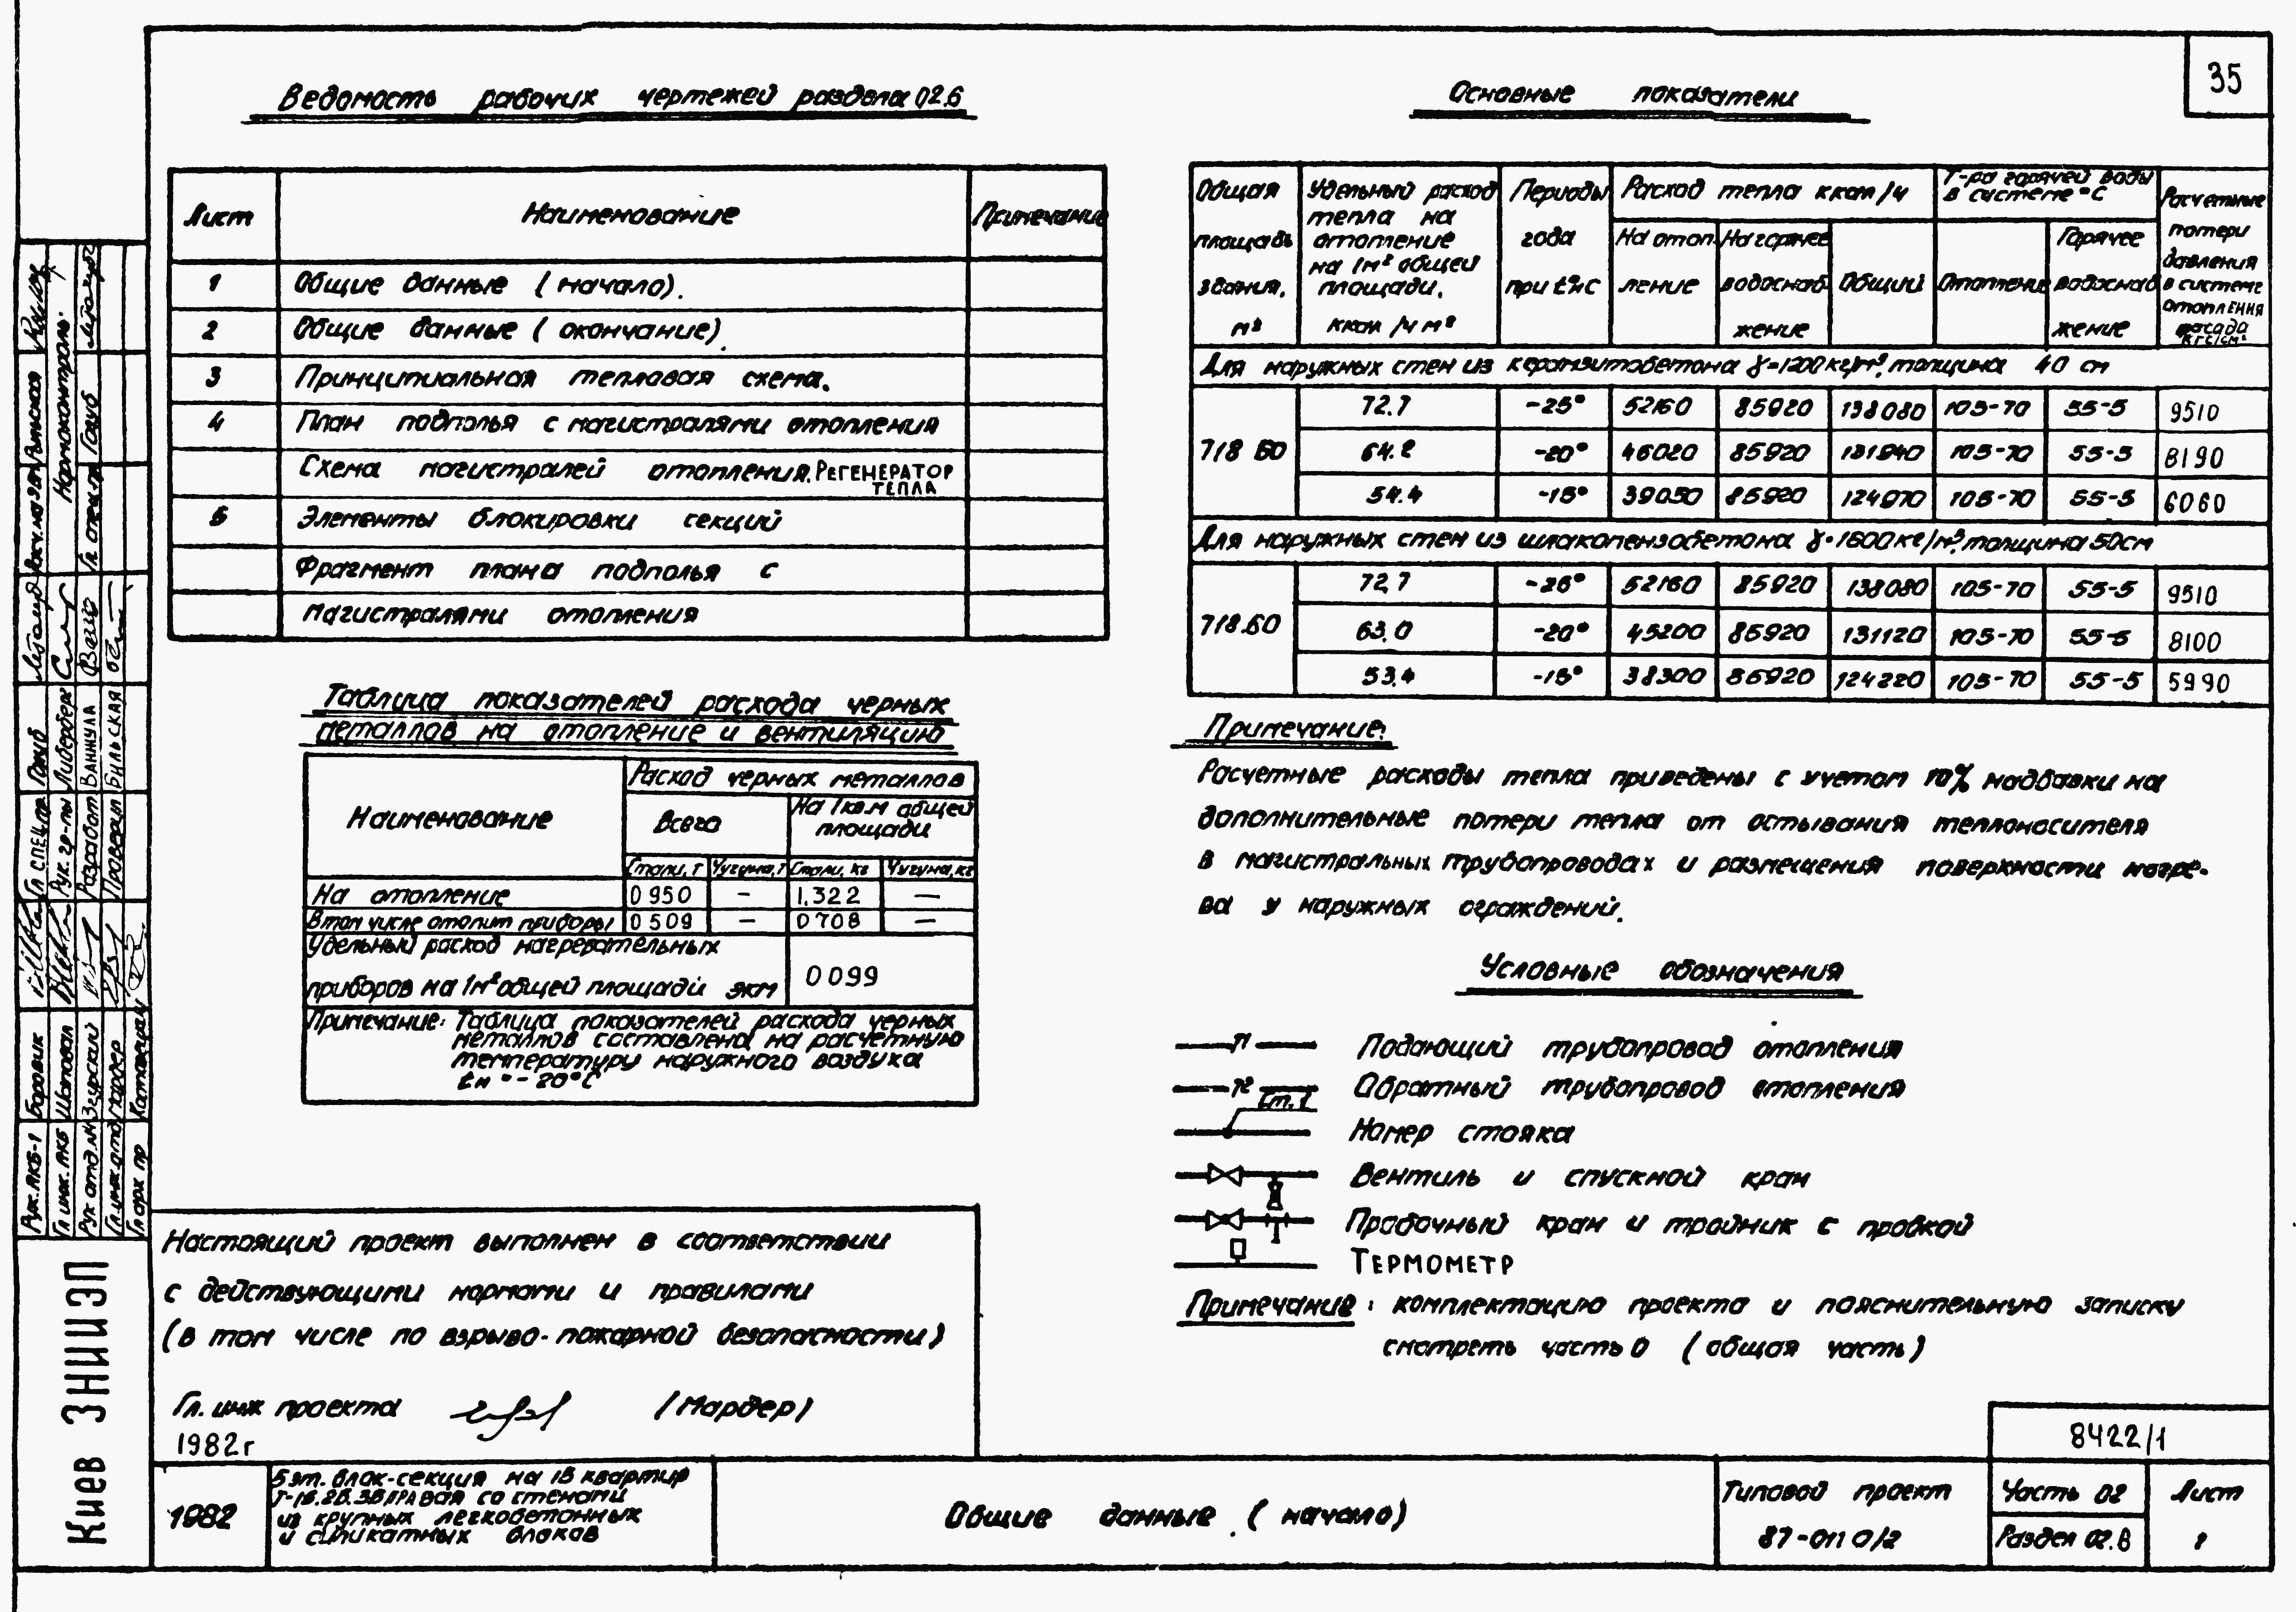 35
Ведомость рабочих чертежей раздела 02.6
Лист Наименование Примечание
1 Общие данные (начало).
2 Общие данные (окончание).
3 Принципиальная тепловая схема.
4 План подполья с магистралями отопления
Схема магистралей отопления. РЕГЕНЕРАТОР
ТЕПЛА
5 Элементы блокировки секций
Фрагмент плана подполья с
магистралями отопления
Таблица показателей расхода черных
металлов на отопление и вентиляцию
Наименование
Расход черных металлов
Всего
На 1 кв.м общей
площади
Стали, т Чугуна, т Стали, кг Чугуна, кг
На отопление 0 950 — 1.322 —
В том числе отопит приборы 0 509 — 0 708 —
Удельный расход нагревательных
приборов на 1м² общей площади экм 0 099
Примечание: Таблица показателей расхода черных
металлов составлена на расчетную
температуру наружного воздуха
tн = -20°С
Настоящий проект выполнен в соответствии
с действующими нормами и правилами
(в том числе по взрыво-пожарной безопасности)
Гл. инж проекта (Мардер)
1982г
Основные показатели
Общая площадь здания, м²
Удельный расход тепла на отопление на 1м² общей площади, ккал/ч м²
Периоды года при tн°С
Расход тепла ккал/ч
На отопление
На горячее водоснабжение
Общий
Т-ра горячей воды в системе °С
Отопление
Горячее водоснабжение
Расчетные потери давления в системе отопления
кгс/см²
Для наружных стен из керамзитобетона γ=1200кг/м³, толщина 40 см
718 60
72.7 -25° 52160 85920 138080 105-70 55-5 9510
64.2 -20° 46020 85920 131940 105-70 55-5 8190
54.4 -15° 39050 85920 124970 105-70 55-5 6060
Для наружных стен из шлакопензобетона γ=1600кг/м³, толщина 50см
718.60
72.7 -25° 52160 85920 138080 105-70 55-5 9510
63.0 -20° 45200 85920 131120 105-70 55-5 8100
53.4 -15° 38300 85920 124220 105-70 55-5 5990
Примечание:
Расчетные расходы тепла приведены с учетом 10% надбавки на
дополнительные потери тепла от остывания теплоносителя
в магистральных трубопроводах и размещения поверхности нагре-
ва у наружных ограждений.
Условные обозначения
Т1 Подающий трубопровод отопления
Т2 Обратный трубопровод отопления
Ст. 1 Номер стояка
Вентиль и спускной кран
Пробочный кран и тройник с пробкой
ТЕРМОМЕТР
Примечание: комплектацию проекта и пояснительную записку
смотреть часть 0 (общая часть)
8422/1
1982
5 эт. блок-секция на 15 квартир
правая со стенами
из крупных легкобетонных
и силикатных блоков
Общие данные (начало)
Типовой проект
87-011 0/2
Часть 02
Раздел 02.В
Лист
1
Киев ЗНИИЭП
Рук. АКБ-1 Боровик
Гл инж. АКБ Шаповал
Рук отд. Згурский
Гл. инж. отд Мардер
Гл арх пр
Гл СПЕЦ. Голуб
Рук. гр-пы Либерберг
Разработ ВАННУЛА
Проверил БИЛЬСКАЯ
Нормоконтроль:
Голуб